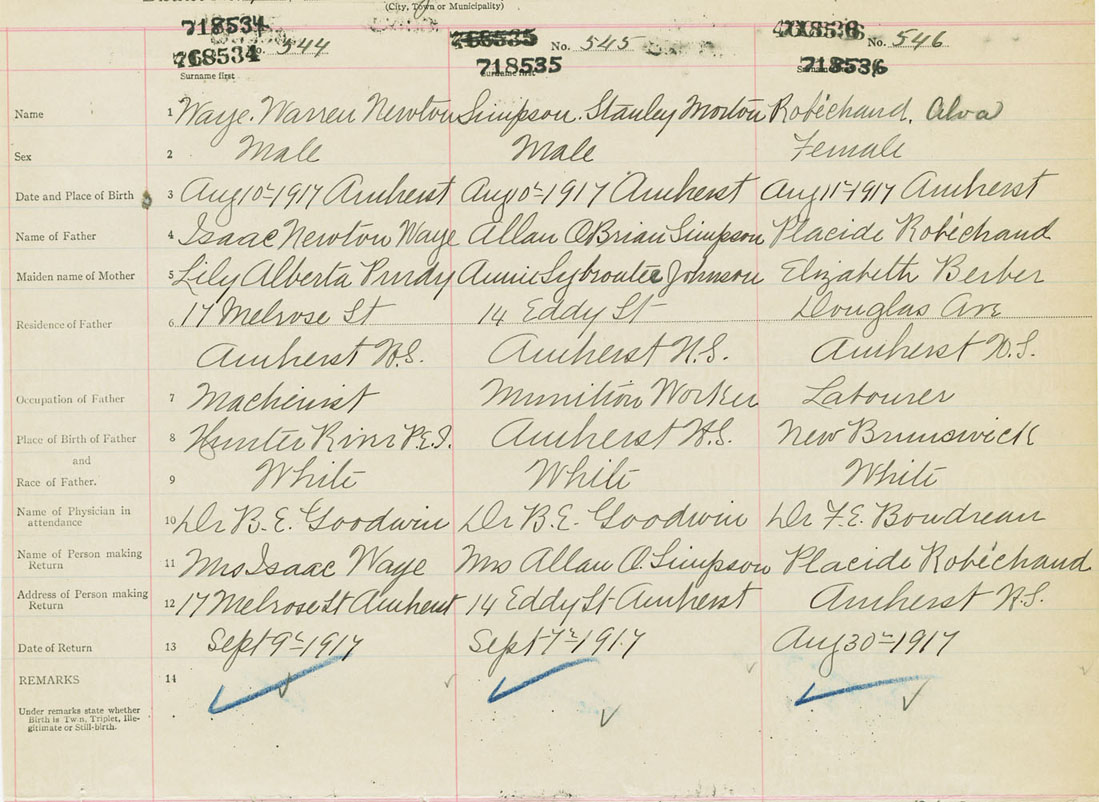 (City, Town or Municipality)
718534 718534 No. 544
Surname first
No. 545 718535
Surname first
No. 546 718536
Name 1 Waye. Warren Newton Simpson. Stanley Morton Robéchaud, Alva
Sex 2 Male Male Female
Date and Place of Birth 3 Aug 10th 1917 Amherst Aug 10th 1917 Amherst Aug 11th 1917 Amherst
Name of Father 4 Isaac Newton Waye Allan O'Brian Simpson Placide Robéchaud
Maiden name of Mother 5 Lily Alberta Purdy Annie Johnson Elizabeth Berber
Residence of Father 6 17 Melrose St 14 Eddy St Douglas Ave
Amherst N.S. Amherst N.S. Amherst N.S.
Occupation of Father 7 Machinist Munition Worker Labourer
Place of Birth of Father 8 Hunter River P.E.I. Amherst N.S. New Brunswick
and
Race of Father. 9 White White White
Name of Physician in attendance 10 Dr B.E. Goodwin Dr B.E. Goodwin Dr F.E. Boudreau
Name of Person making Return 11 Mrs Isaac Waye Mrs Allan O. Simpson Placide Robéchaud
Address of Person making Return 12 17 Melrose St Amherst 14 Eddy St Amherst Amherst N.S.
Date of Return 13 Sept 9th 1917 Sept 7th 1917 Aug 30th 1917
REMARKS 14
Under remarks state whether
Birth is Twin, Triplet, Ille-
gitimate or Still-birth.